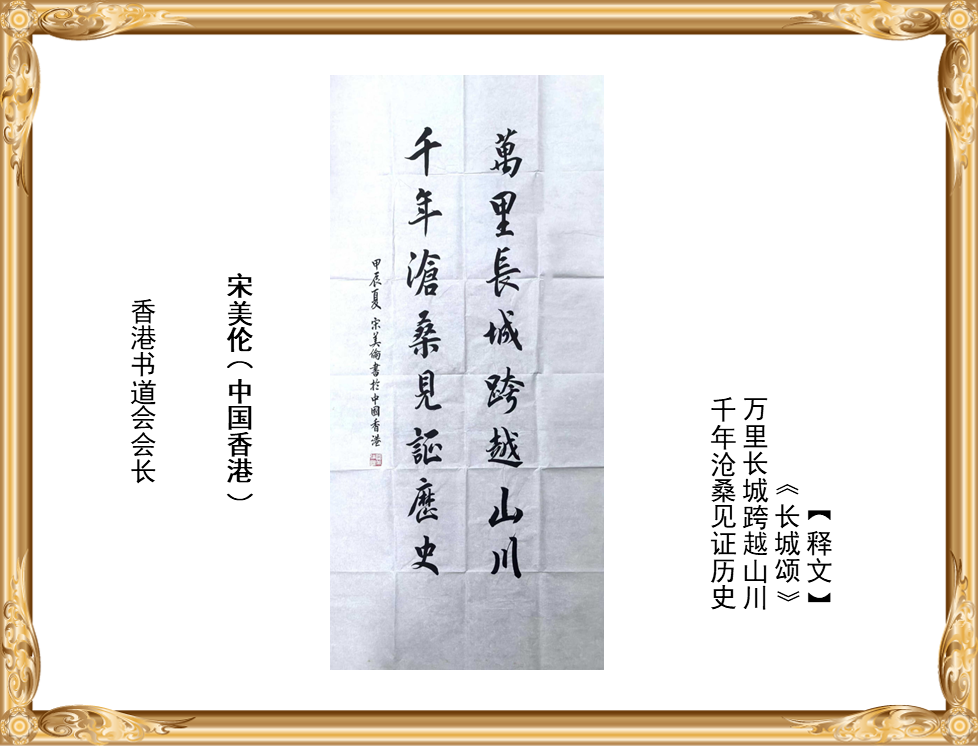 【释文】
《长城颂》
万里长城跨越山川
千年沧桑见证历史
萬里長城跨越山川
千年滄桑見証歷史
甲辰夏 宋美倫書於中國香港
宋美伦（中国香港）
香港书道会会长